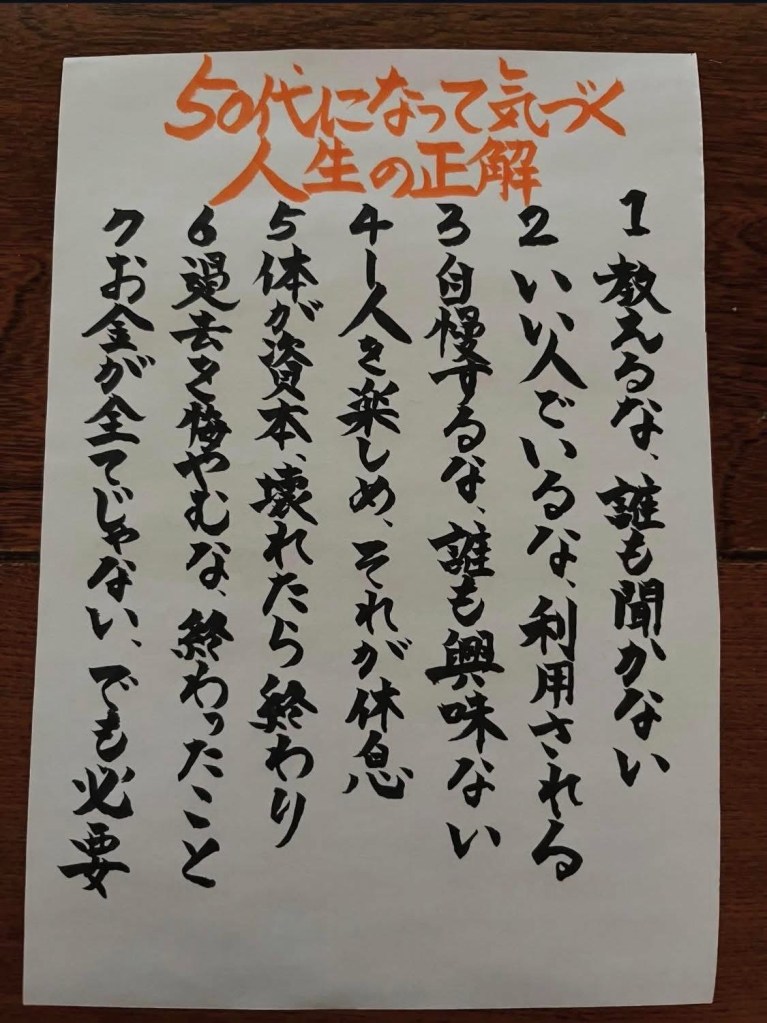 50代になって気づく
人生の正解
1 教えるな、誰も聞かない
2 いい人でいるな、利用される
3 自慢するな、誰も興味ない
4 1人を楽しめ、それが休息
5 体が資本、壊れたら終わり
6 過去を悔やむな、終わったこと
7 お金が全てじゃない、でも必要